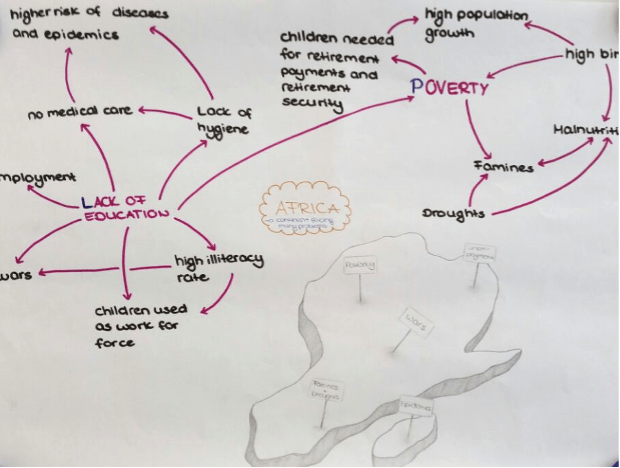 higher risk of diseases
and epidemics
no medical care
Lack of
hygiene
mployment
LACK OF
EDUCATION
wars
high illiteracy
rate
children used
as work for
force
children needed
for retirement
payments and
retirement
security
high population
growth
high bir
POVERTY
Malnutriti
Famines
Droughts
AFRICA
many problems
Poverty
Wars